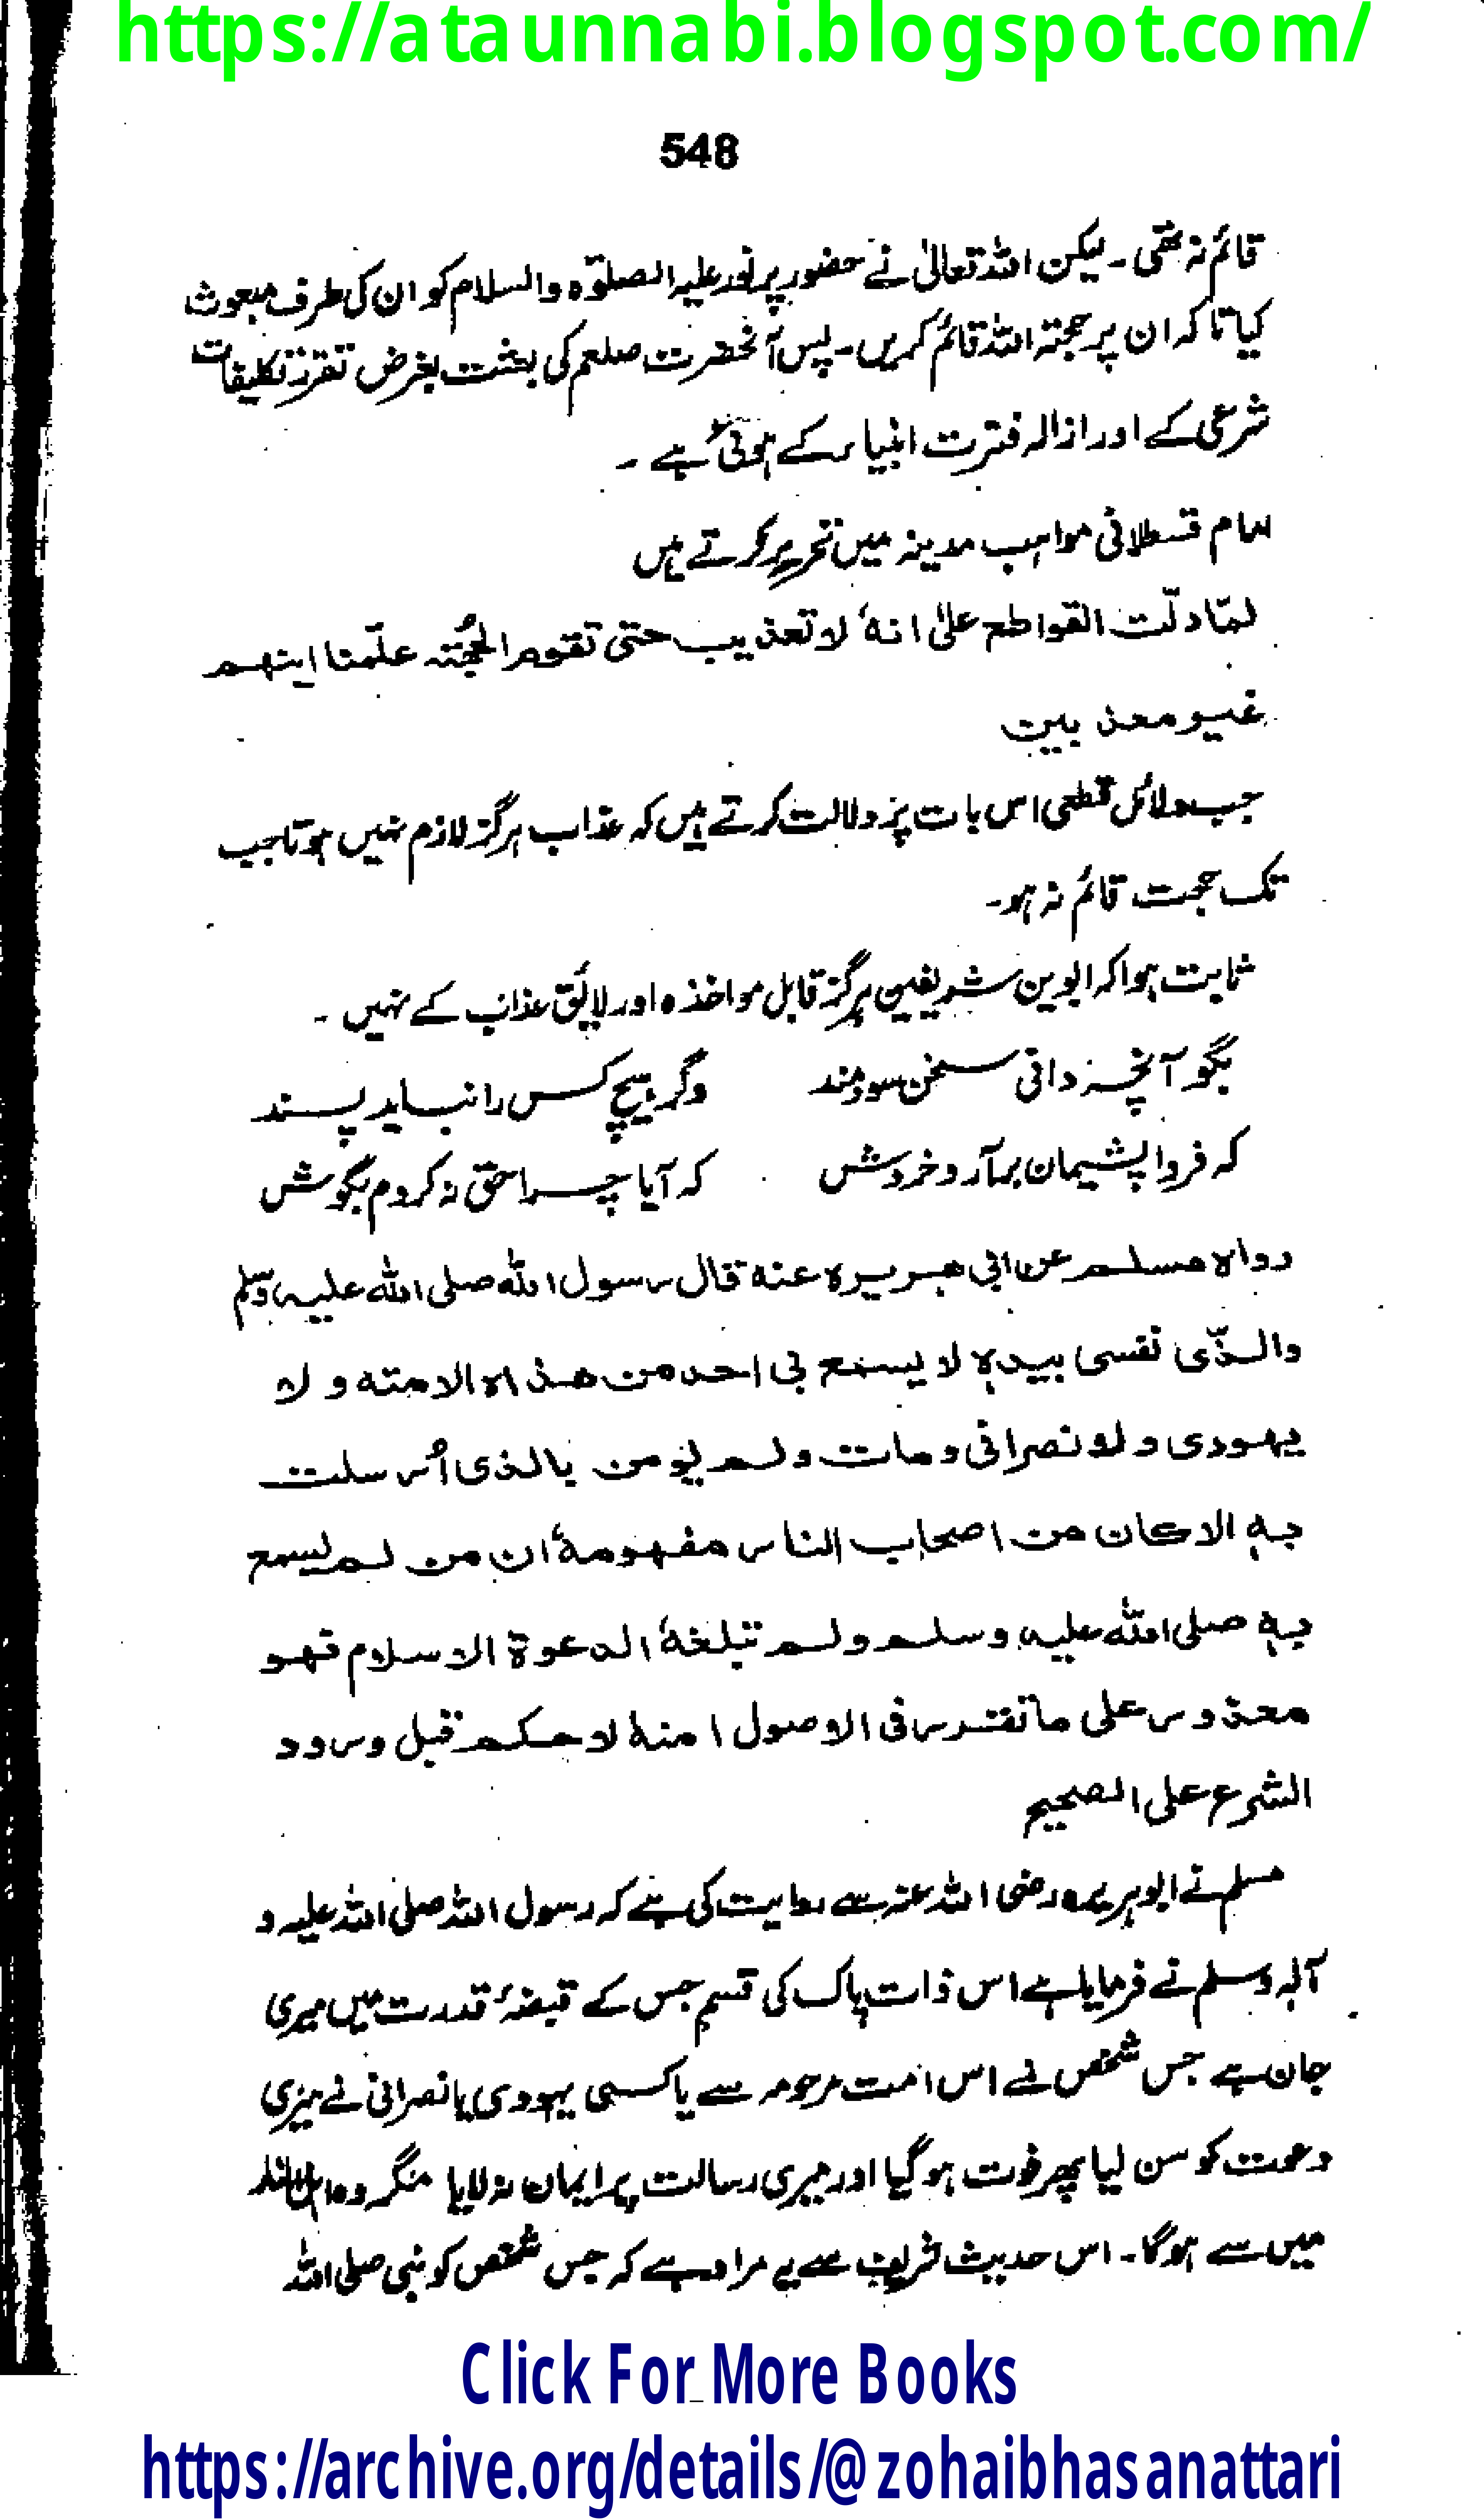 https://ataunnabi.blogspot.com/
548
قائم نہ تھی ۔ لیکن اللہ تعالیٰ نے حضور پر نور علیہ الصلوٰۃ والسلام کو ان کی طرف مبعوث
کیا تا کہ ان پر حجتہ اللہ قائم کریں ۔ پس آنحضرت صلعم کی بعثت بغرض تقرر تکلیفات
شرعی کے اور ازالہ فترت انبیاء کے ہوئی ہے ۔
امام قسطلانی مواہب مدینہ میں تحریر کرتے ہیں
لمّا دلّت القواطع علیٰ انہٗ لا تعذیب حتی تقوم الحجُتہ علّمنا اینهم
غیر معذبین
جب دلائل قطعی اس بات پر دلالت کرتے ہیں کہ عذاب ہرگز لازم نہیں ہوتا جب
تک حجت قائم نہ ہو۔
ثابت ہوا کہ ابوین شریفین ہرگز قابل مواخذہ اور لائق عذاب کے نہیں ۔
بگو آنچہ دانی سخن سودمند وگر ہیچ کس را نباید پسند
کہ فردا پشیمان برآرد خروش کہ آیا چرا حق نہ کردم بگوش
رواہ مسلم عن ابی ہریرہ عنہ قال رسول اللہ صلی اللہ علیہ وسلم
والذّی نفسی بیدہٖ لا یسمع بی احد من ھذہ الامتہ ولا
یھودی ولا نصرانی و مات ولم یؤمن بالذی اُرسلت
بہٖ الا کان من اصحاب النار مفہومہٗ ان من لم یسمع
بہٖ صلی اللہ علیہ وسلم ولم تبلغہٗ الدعوۃ الاسلام فھو
معذور علی ما تقرر فی الاصول امنہٗ لا حکم قبل ورود
الشرع علی الصحیح
مسلم نے ابوہریرہ رضی اللہ عنہ سے روایت کی ہے کہ رسول اللہ صلی اللہ علیہ و
آلہ وسلم نے فرمایا ہے اس ذات پاک کی قسم جس کے قبضۂ قدرت میں میری
جان ہے جس شخص نے اس امت مرحومہ سے یا کسی یہودی یا نصرانی نے میری
دعوت کو سن لیا پھر فوت ہو گیا اور میری رسالت پر ایمان نہ لایا مگر وہ
میں سے ہوگا ۔ اس حدیث شریف سے یہ مراد ہے کہ جس شخص کو نبی صلی اللہ
Click For More Books
https://archive.org/details/@zohaibhasanattari